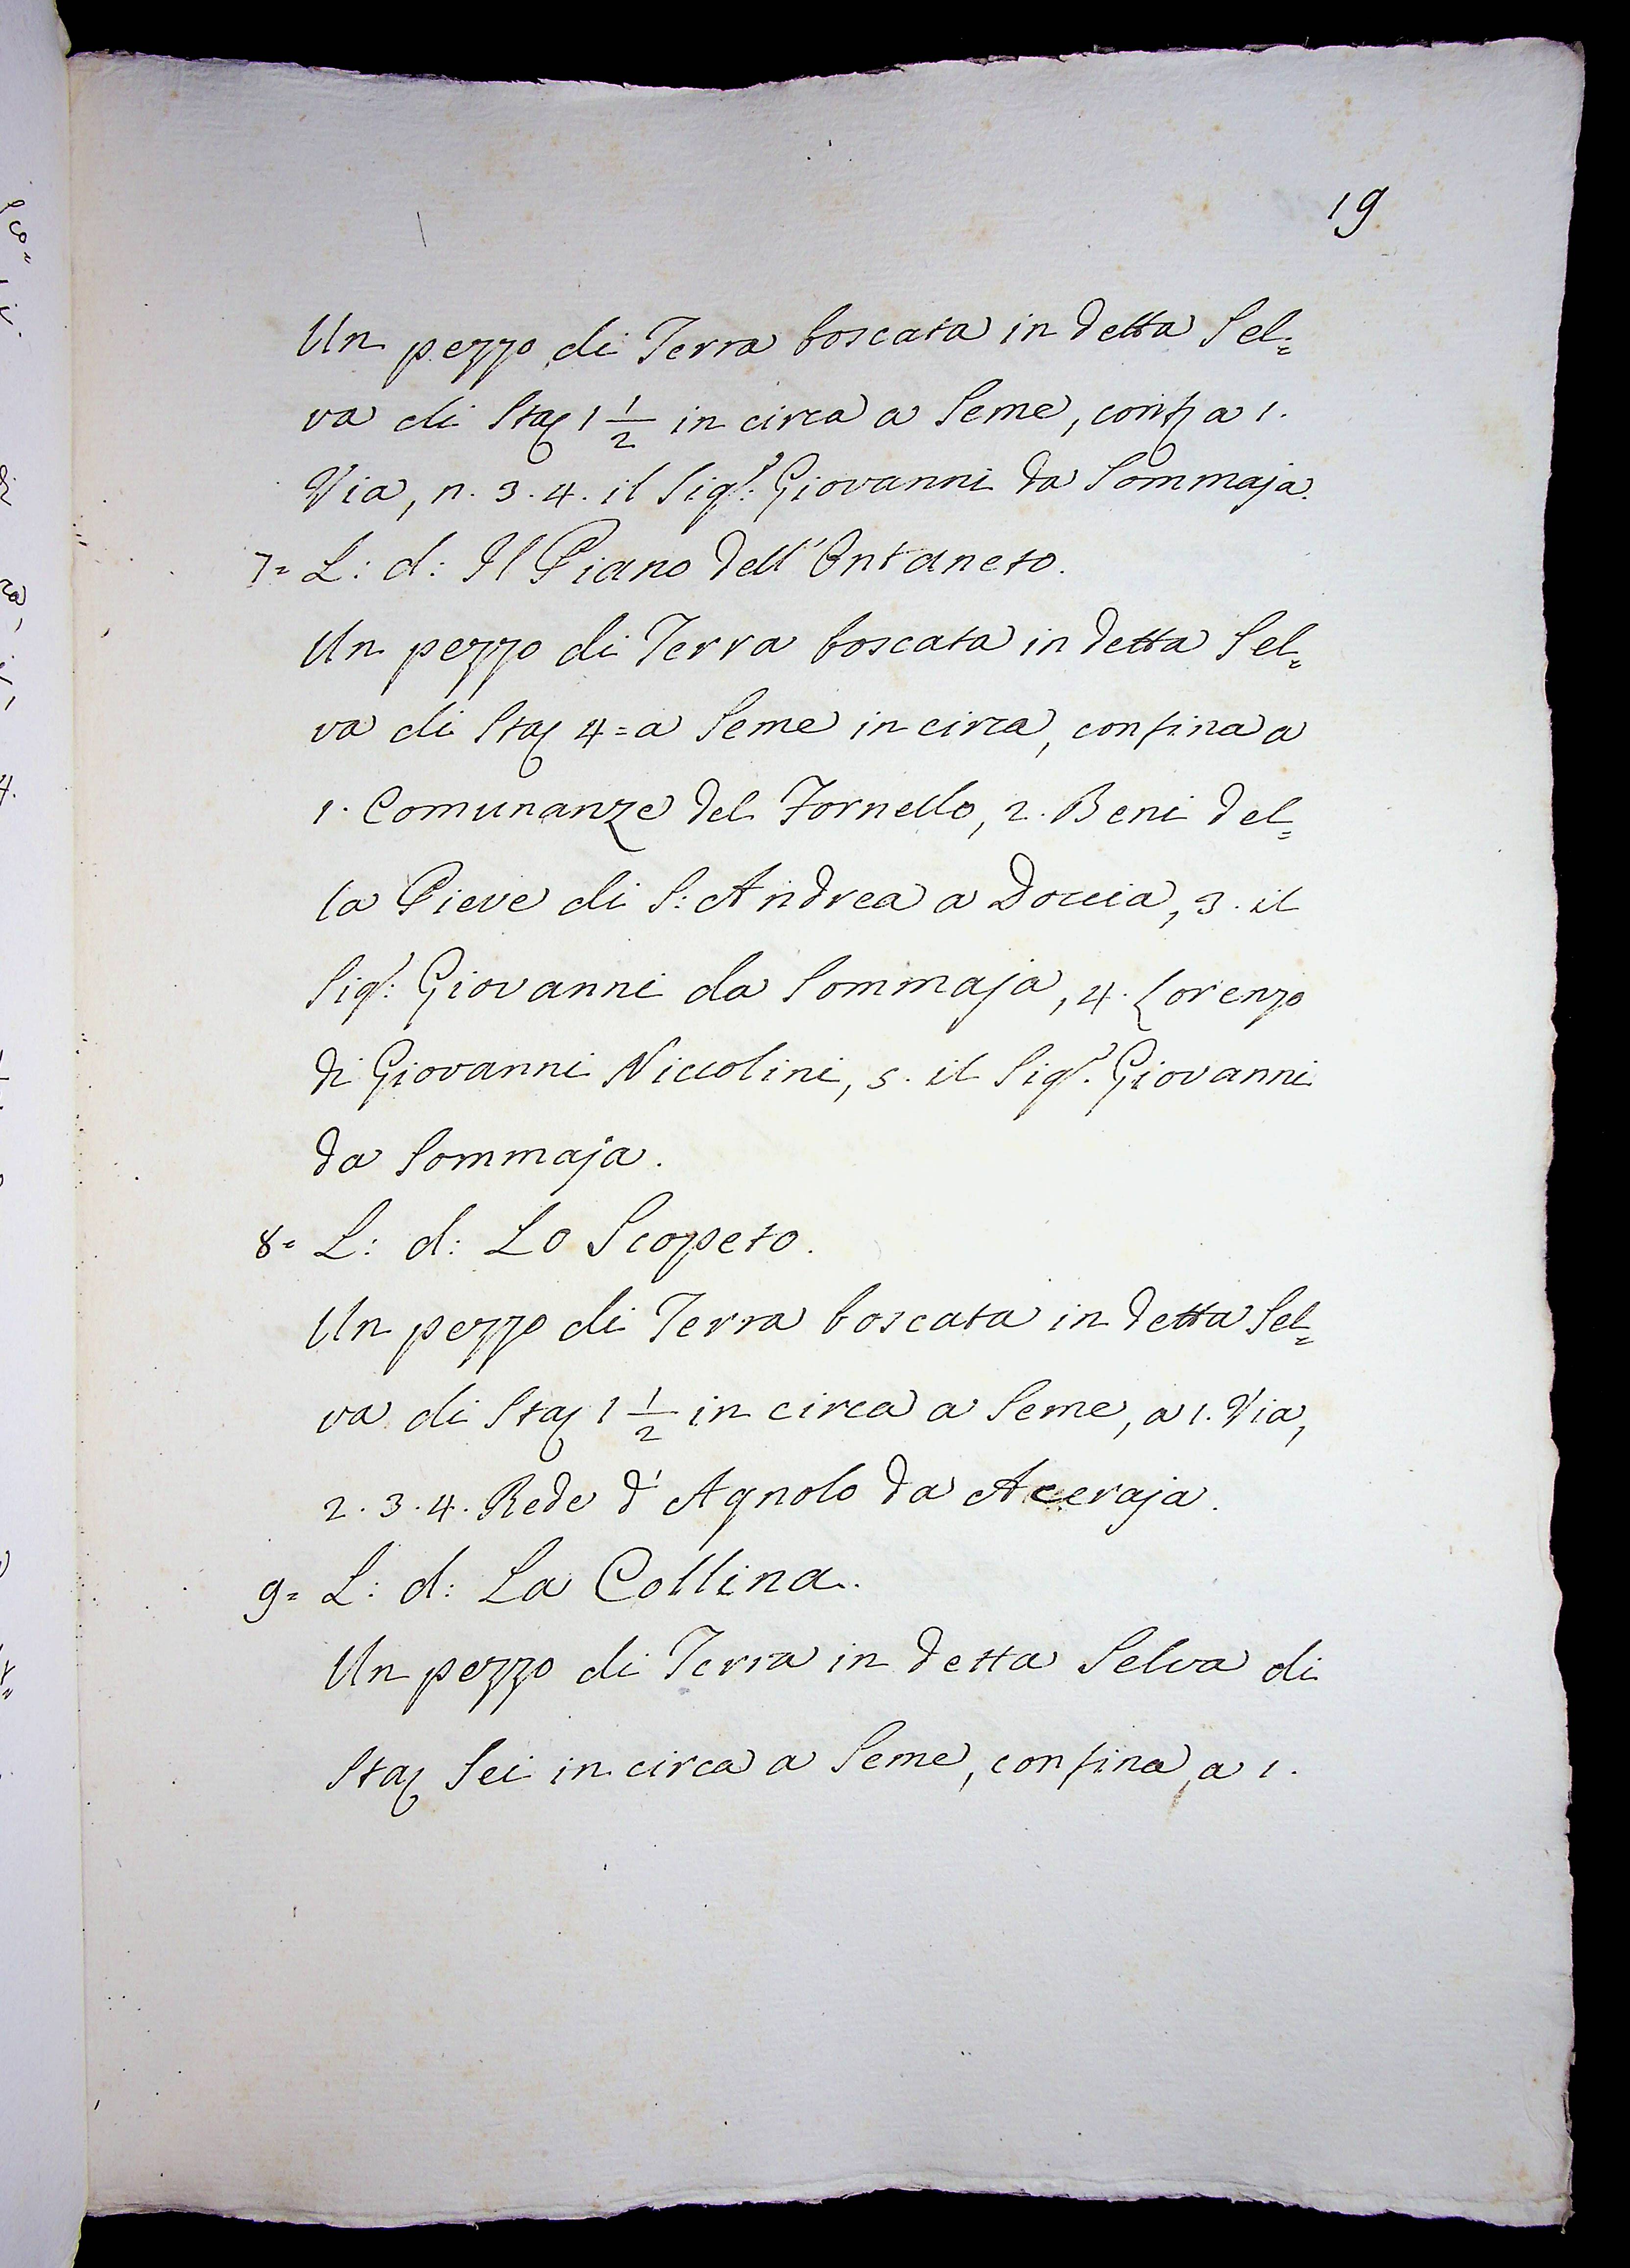 19
Un pezzo di Terra boscata in detta Sel=
va di Sta 1 1/2 in circa a Seme, conf a 1.
Via, n. 3. 4. il Sigr: Giovanni da Sommaja.
7= L: d: Il Piano dell'Ontaneto.
Un pezzo di Terra boscata in detta Sel=
va di Sta 4= a Seme in circa, confina a
1. Comunanze del Fornello, 2. Beni del=
la Pieve di S: Andrea a Doccia, 3. il
Sigr: Giovanni da Sommaja, 4. Lorenzo
di Giovanni Niccolini, 5. il Sigr. Giovanni
da Sommaja.
8= L: d: Lo Scopeto.
Un pezzo di Terra boscata in detta Sel=
va di Sta 1 1/2 in circa a Seme, a 1. Via,
2. 3. 4. Rede d'Agnolo da Aceraja.
9= L: d: La Collina.
Un pezzo di Terra in detta Selva di
Sta Sei in circa a Seme, confina, a 1.